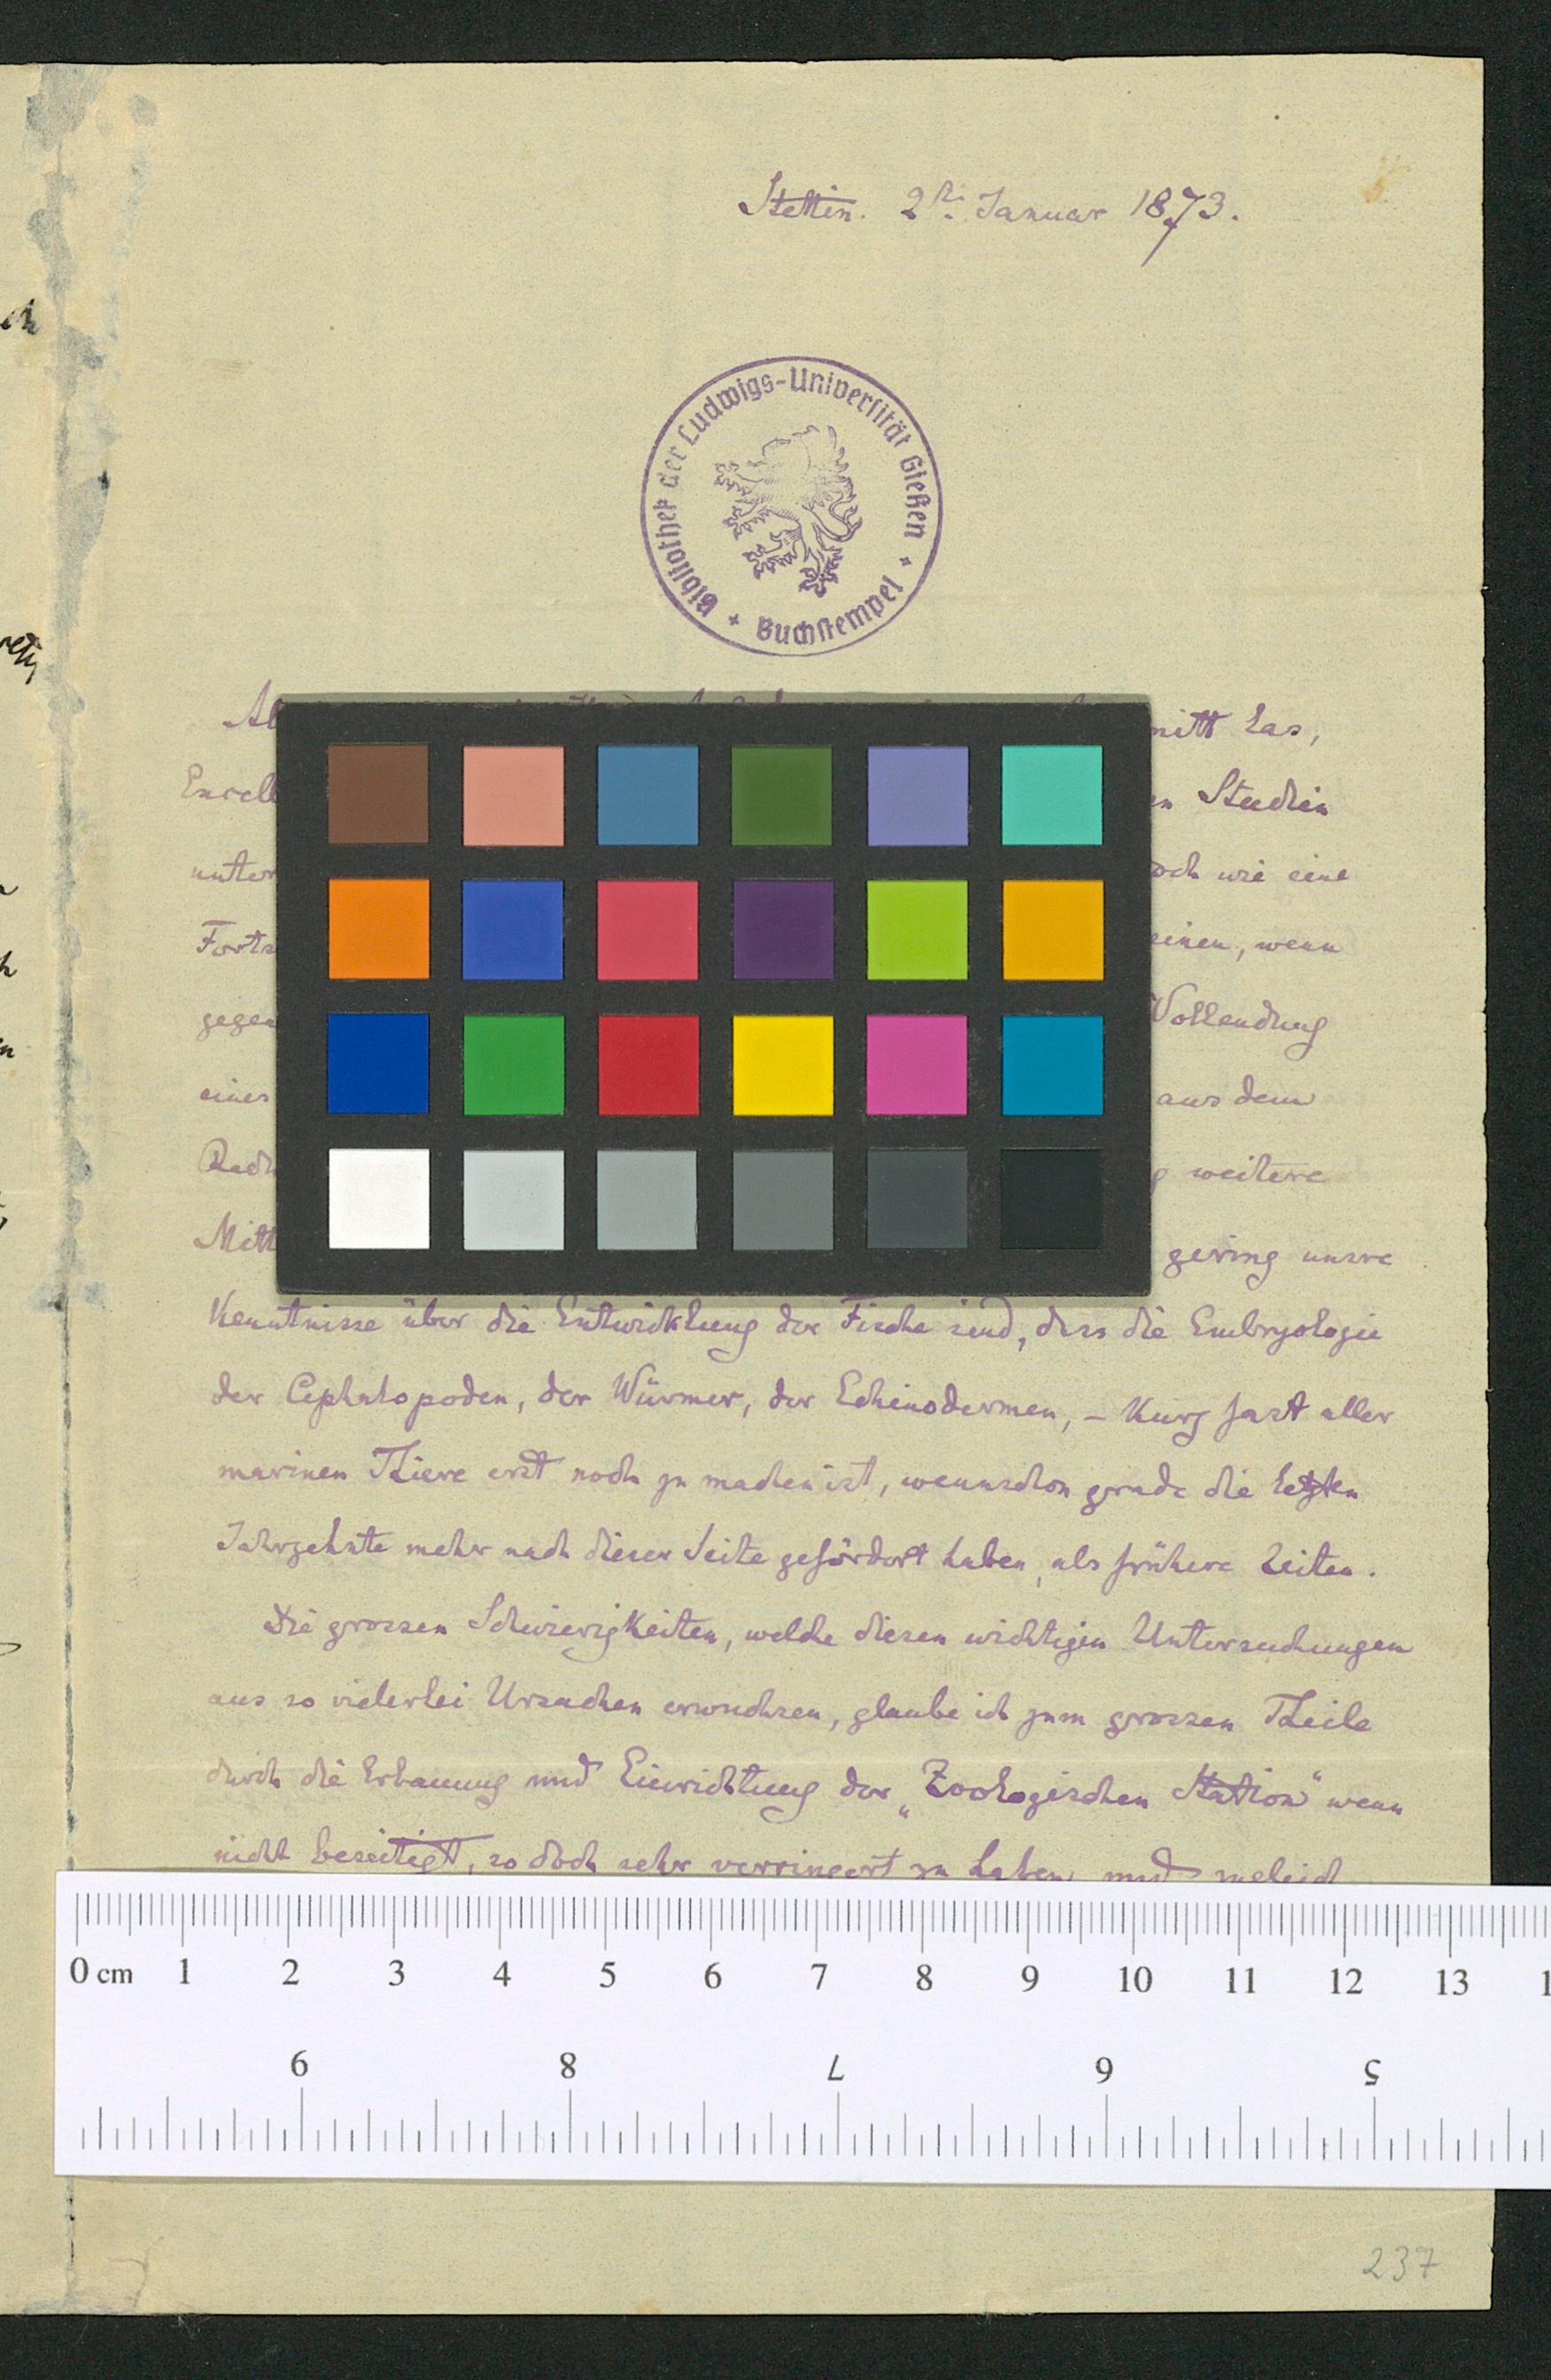 Stettin. 2ten Januar 1873.
Bibliothek der Ludwigs-Universität Gießen
Buchstempel
Al
mitt las,
Excell
en Studien
unter
och wie eine
Forts
einen, wenn
gegen
Vollendung
eines
aus dem
weitere
Mitt
gering unsre
Kenntnisse über die Entwicklung der Fische sind, dass die Embryologie
der Cephalopoden, der Würmer, der Echinodermen, – Kurz fast aller
marinen Thiere erst noch zu machen ist, wennschon grade die letzten
Jahrzehnte mehr nach dieser Seite gefördert haben, als frühere Zeiten.
Die grossen Schwierigkeiten, welche diesen wichtigen Untersuchungen
aus so vielerlei Ursachen erwuchsen, glaube ich zum grossen Theile
durch die Erbauung und Einrichtung der „Zoologischen Station“ wenn
nicht beseitigt, so doch sehr verringert zu haben, und zugleich
0 cm 1 2 3 4 5 6 7 8 9 10 11 12 13 1
9 8 7 6 5
237